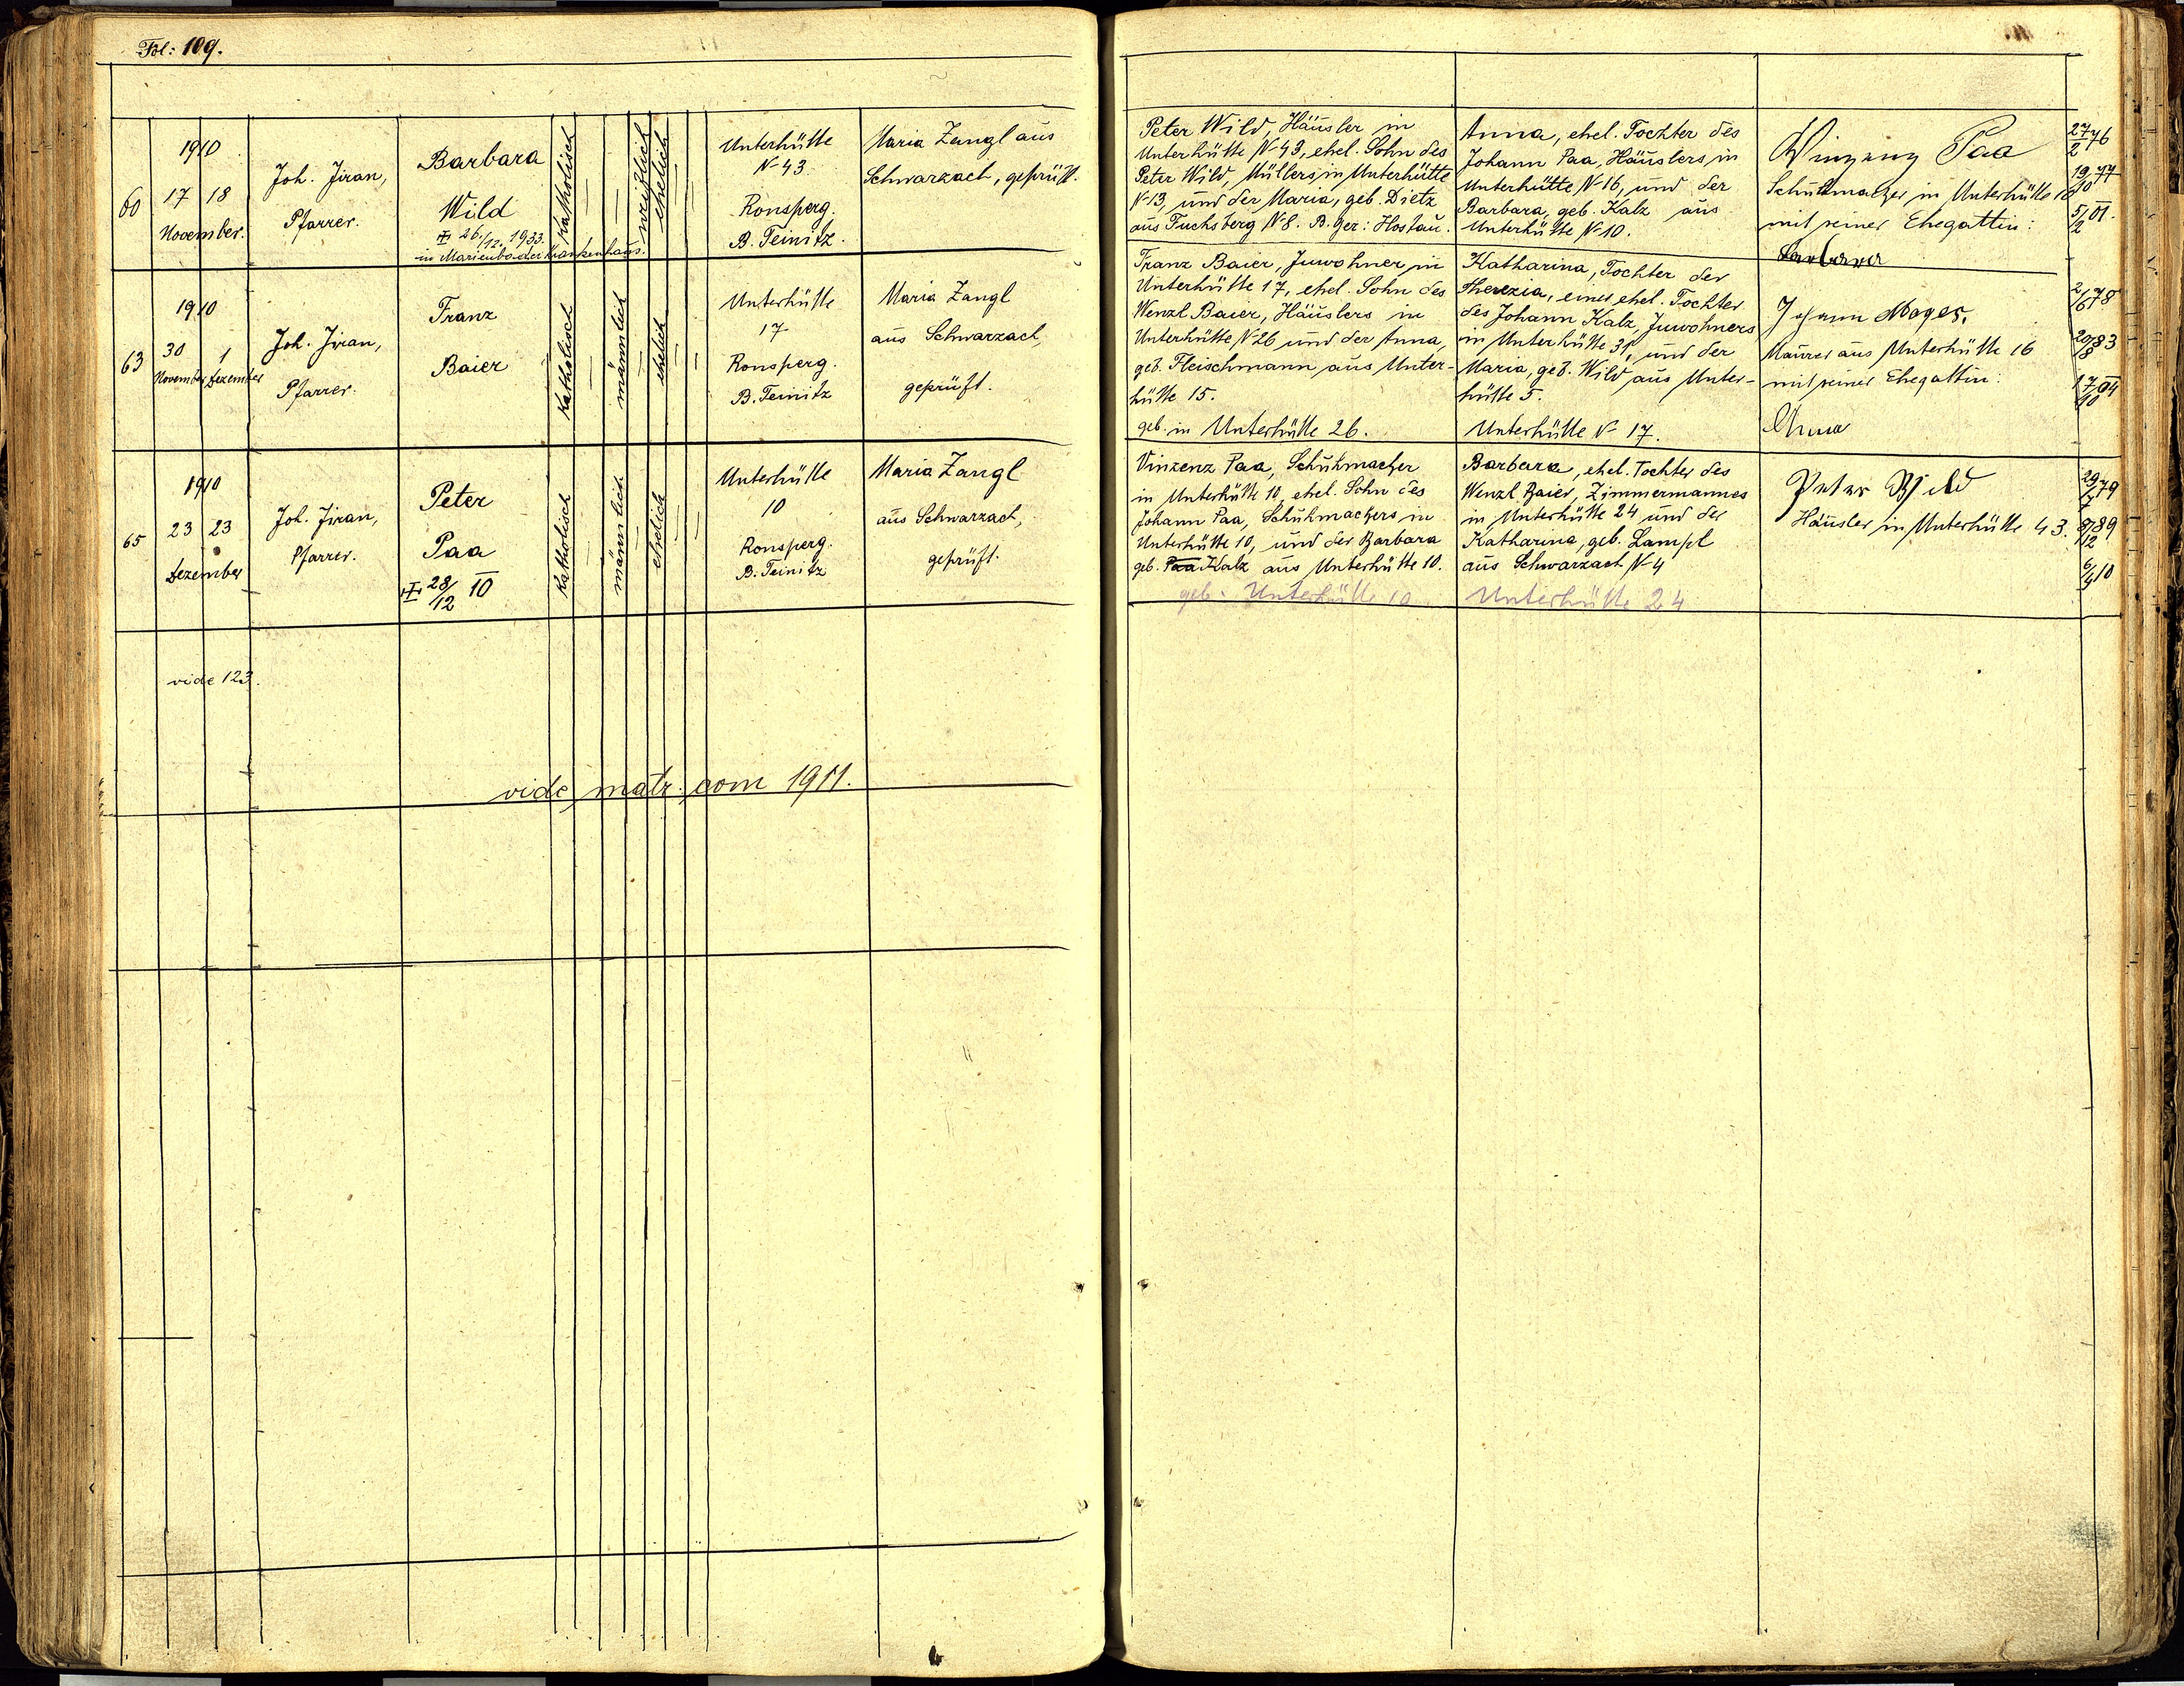 Fol: 109.
60
1910
17 18
November.
Joh. Jiran,
Pfarrer.
Barbara
Wild
26./12. 1933.
in Marienbader Krankenhaus.
Katholisch
weiblich
ehelich
Unterhütte
N 43.
Ronsperg.
B. Teinitz.
Maria Zangl aus
Schwarzach, geprüft.
Peter Wild, Häusler in
Unterhütte N 43, ehel. Sohn des
Peter Wild, Müllers in Unterhütte
N 13 und der Maria, geb. Dietz
aus Fuchsberg N 8. B. Ger: Hostau.
Anna, ehel. Tochter des
Johann Paa, Häuslers in
Unterhütte N 16, und der
Barbara, geb. Kalz aus
Unterhütte N 10.
Vinzenz Paa
Schuhmacher in Unterhütte 10
mit seiner Ehegattin:
Barbara
27/2 76
19/10 77
5/2 01.
63
1910
30 1
November Dezember
Joh. Jiran,
Pfarrer.
Franz
Baier
Katholisch
männlich
ehelich
Unterhütte
17
Ronsperg.
B. Teinitz
Maria Zangl
aus Schwarzach,
geprüft.
Franz Baier, Inwohner in
Unterhütte 17, ehel. Sohn des
Wenzl Baier, Häuslers in
Unterhütte N 26 und der Anna,
geb. Fleischmann aus Unter-
hütte 15.
geb. in Unterhütte 26.
Katharina, Tochter der
Therezia, eines ehel. Tochter
des Johann Kalz, Inwohners
in Unterhütte 31, und der
Maria, geb. Wild aus Unter-
hütte 5.
Unterhütte N 17.
Johann Moger,
Maurer aus Unterhütte 16
mit seiner Ehegattin:
Anna
2/6 78
20/8 83
17/10 04
65
1910
23 23
Dezember
Joh. Jiran,
Pfarrer.
Peter
Paa
28/12 10
Katholisch
männlich
ehelich
Unterhütte
10
Ronsperg.
B. Teinitz
Maria Zangl
aus Schwarzach,
geprüft.
Vinzenz Paa, Schuhmacher
in Unterhütte 10, ehel. Sohn des
Johann Paa, Schuhmachers in
Unterhütte 10, und der Barbara
geb. Paa Kalz aus Unterhütte 10.
geb. Unterhütte 10
Barbara, ehel. Tochter des
Wenzl Baier, Zimmermannes
in Unterhütte 24 und der
Katharina, geb. Lampl
aus Schwarzach N 4
Unterhütte 24
Peter Wild
Häusler in Unterhütte 43.
29/7 79
8/12 89
6/4 10
vide 123.
vide matr. com 1911.